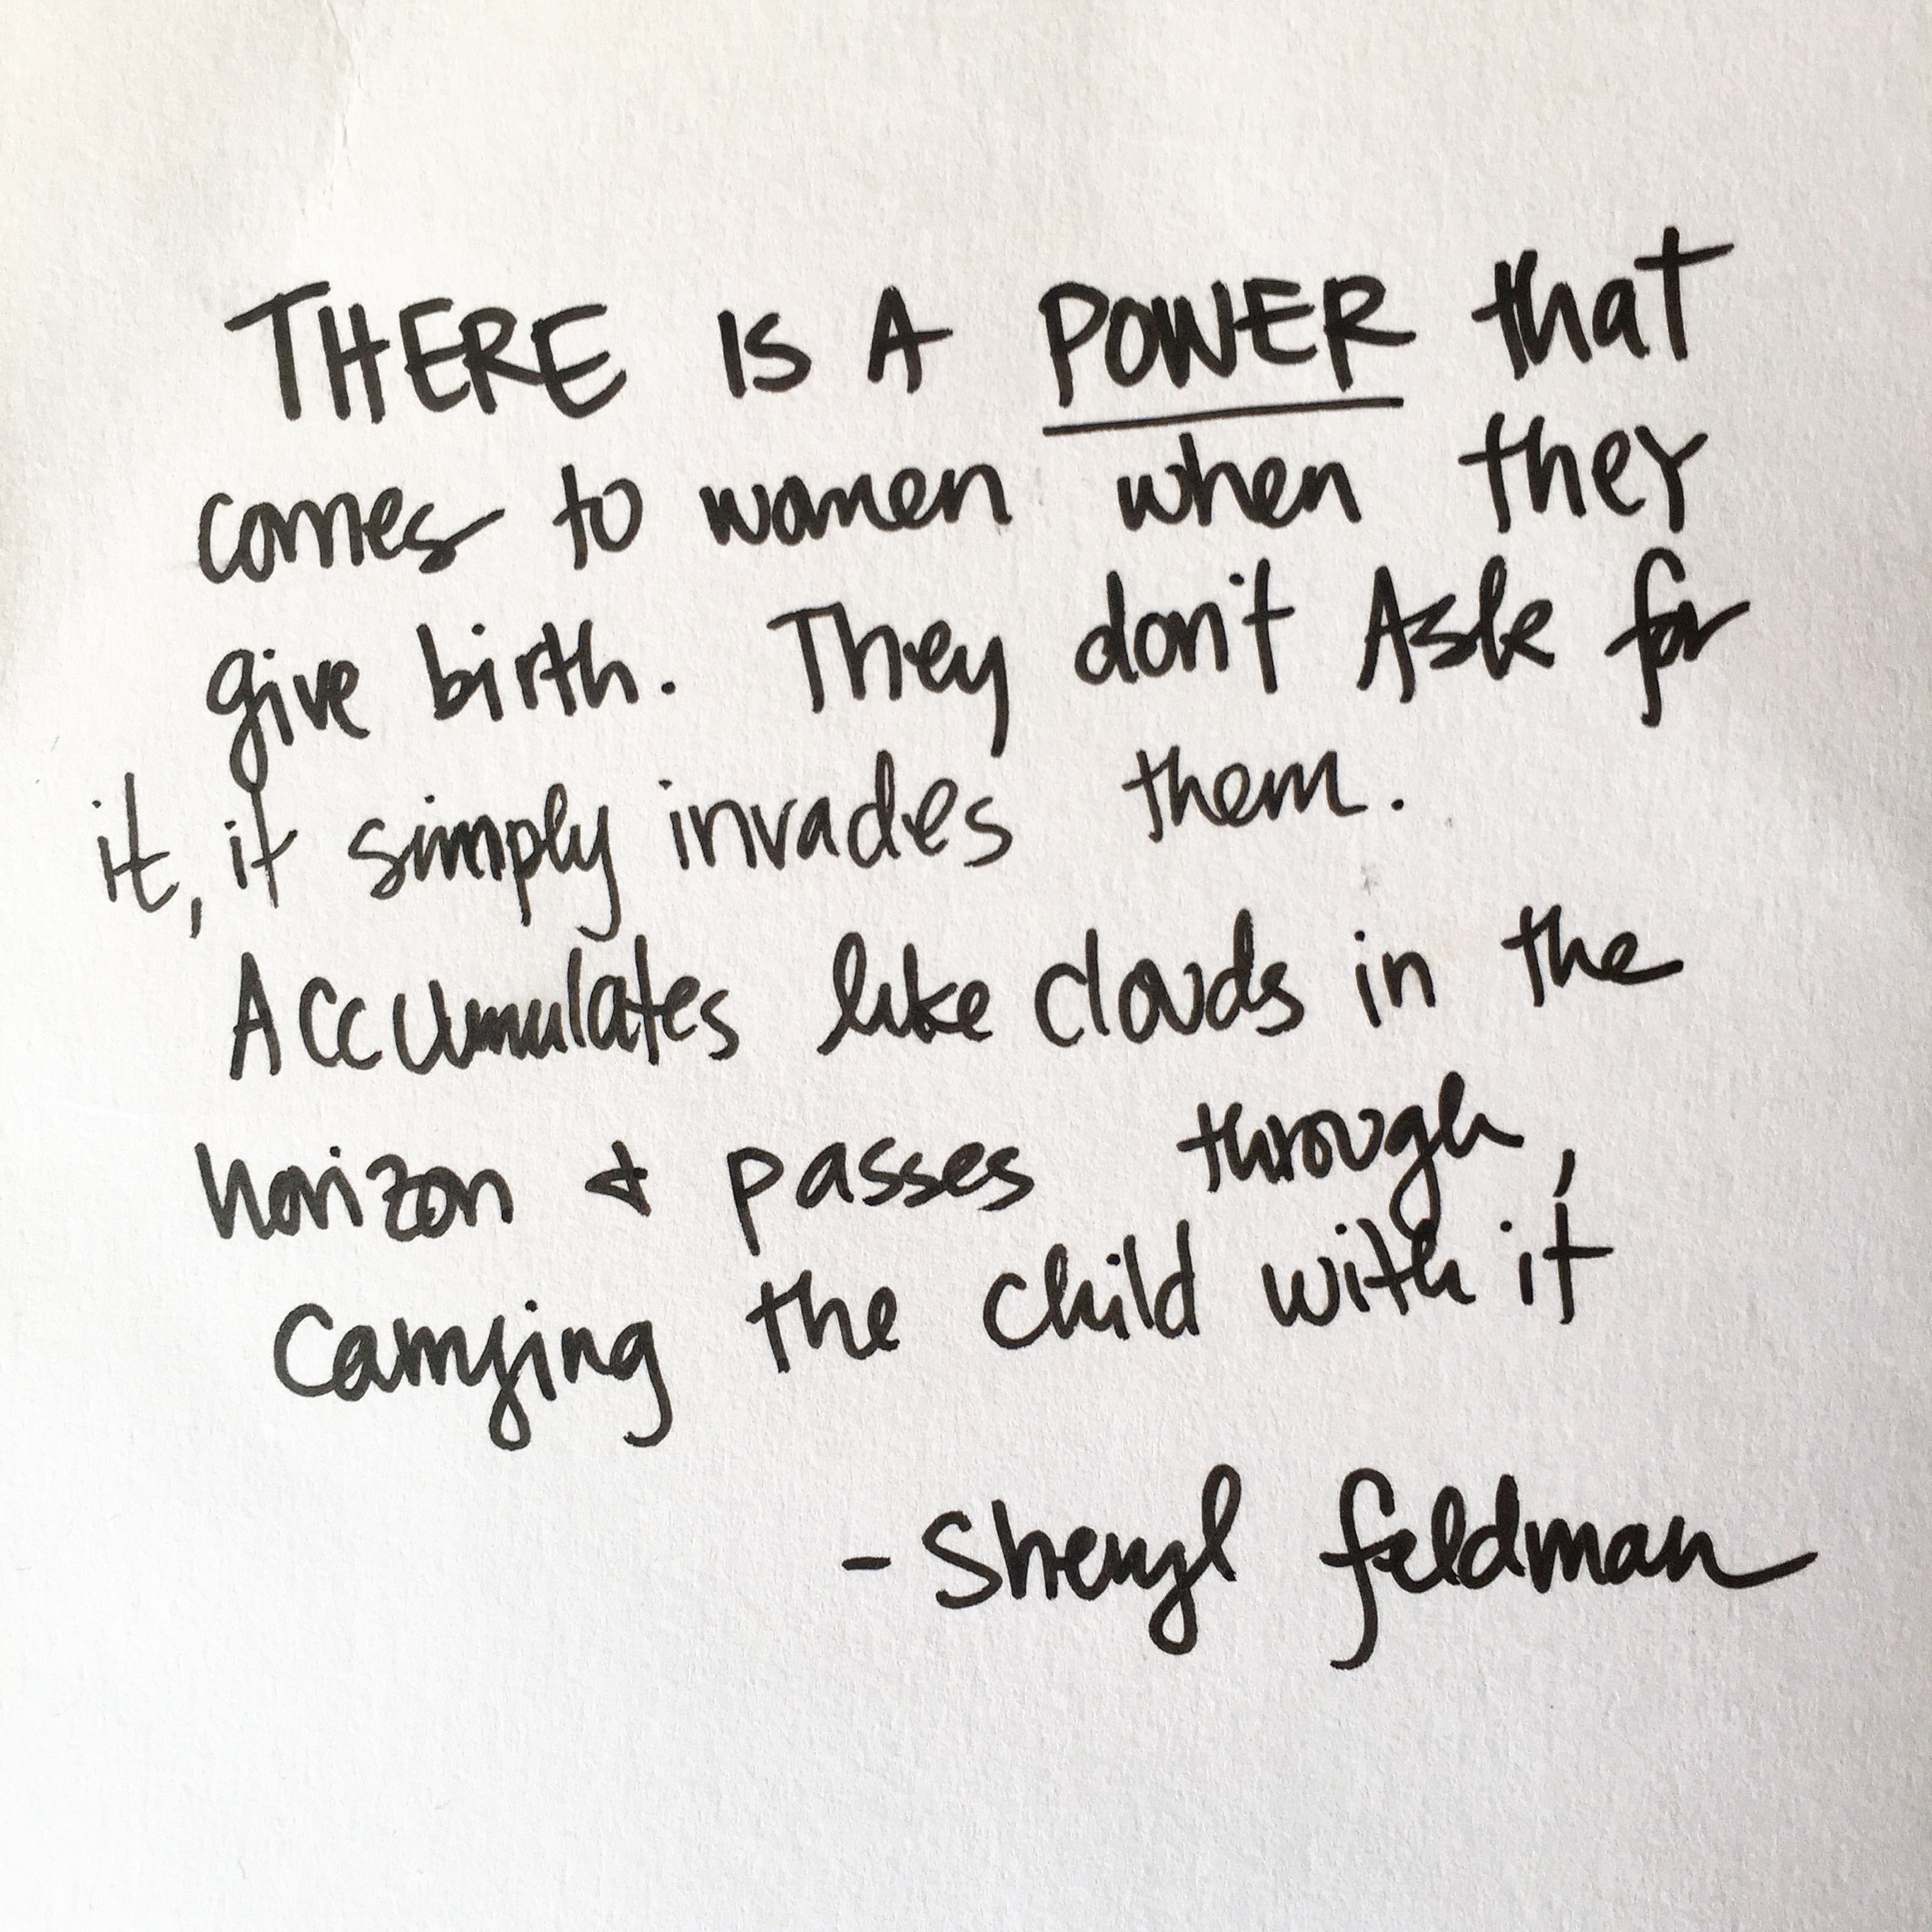 THERE IS A POWER that
comes to women when they
give birth. They don't Ask for
it, it simply invades them.
Accumulates like clouds in the
horizon & passes through,
Carrying the child with it
- Sheryl feldman